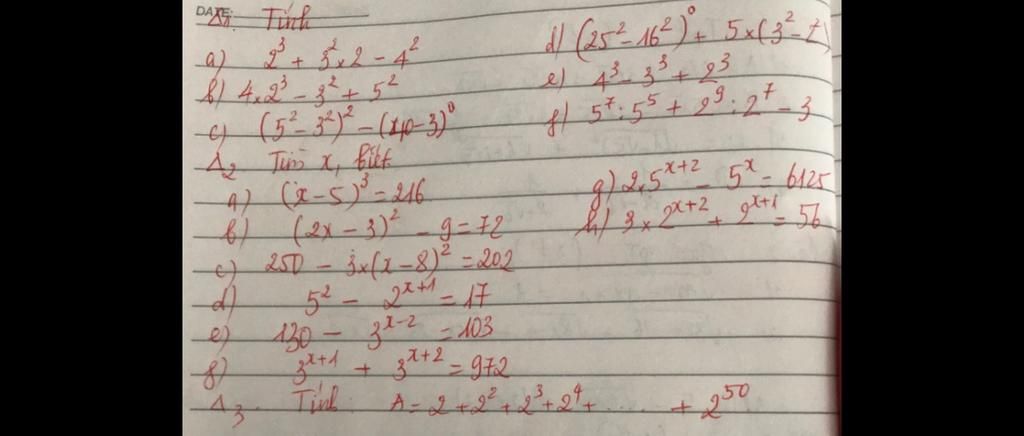 DATE:
Δ1. Tính
a) 2³ + 3² × 2 - 4²
b) 4 × 2³ - 3² + 5²
c) (5² - 3²)² - (10 - 3)⁰
d) (25² - 16²)⁰ + 5 × (3² - 7)
e) 4³ - 3³ + 2³
f) 5⁷ : 5⁵ + 2⁹ : 2⁷ - 3
Δ2 Tìm x, biết
a) (x - 5)³ = 216
b) (2x - 3)² - 9 = 72
c) 250 - 3 × (x - 8)² = 202
d) 5² - 2ˣ⁺¹ = 17
e) 130 - 3ˣ⁻² = 103
f) 3ˣ⁺¹ + 3ˣ⁺² = 972
g) 2.5ˣ⁺² - 5ˣ = 6125
h) 3 × 2ˣ⁺² + 2ˣ⁺¹ = 56
Δ3. Tính: A = 2 + 2² + 2³ + 2⁴ + ...... + 2⁵⁰